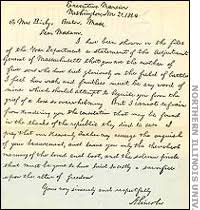 Executive Mansion
Washington, Nov 21, 1864
To Mrs Bixby, Boston, Mass,
Dear Madam,
I have been shown in the files
of the War Department a statement of the Adjutant
General of Massachusetts that you are the mother of
five sons who have died gloriously on the field of battle
I feel how weak and fruitless must be any word of
mine which should attempt to beguile you from the
grief of a loss so overwhelming. But I cannot refrain
from tendering you the consolation that may be found
in the thanks of the republic they died to save. I
pray that our Heavenly Father may assuage the anguish
of your bereavement, and leave you only the cherished
memory of the loved and lost, and the solemn pride
that must be yours to have laid so costly a sacrifice
upon the altar of freedom
Yours very sincerely and respectfully
A. Lincoln
NORTHERN ILLINOIS UNIV